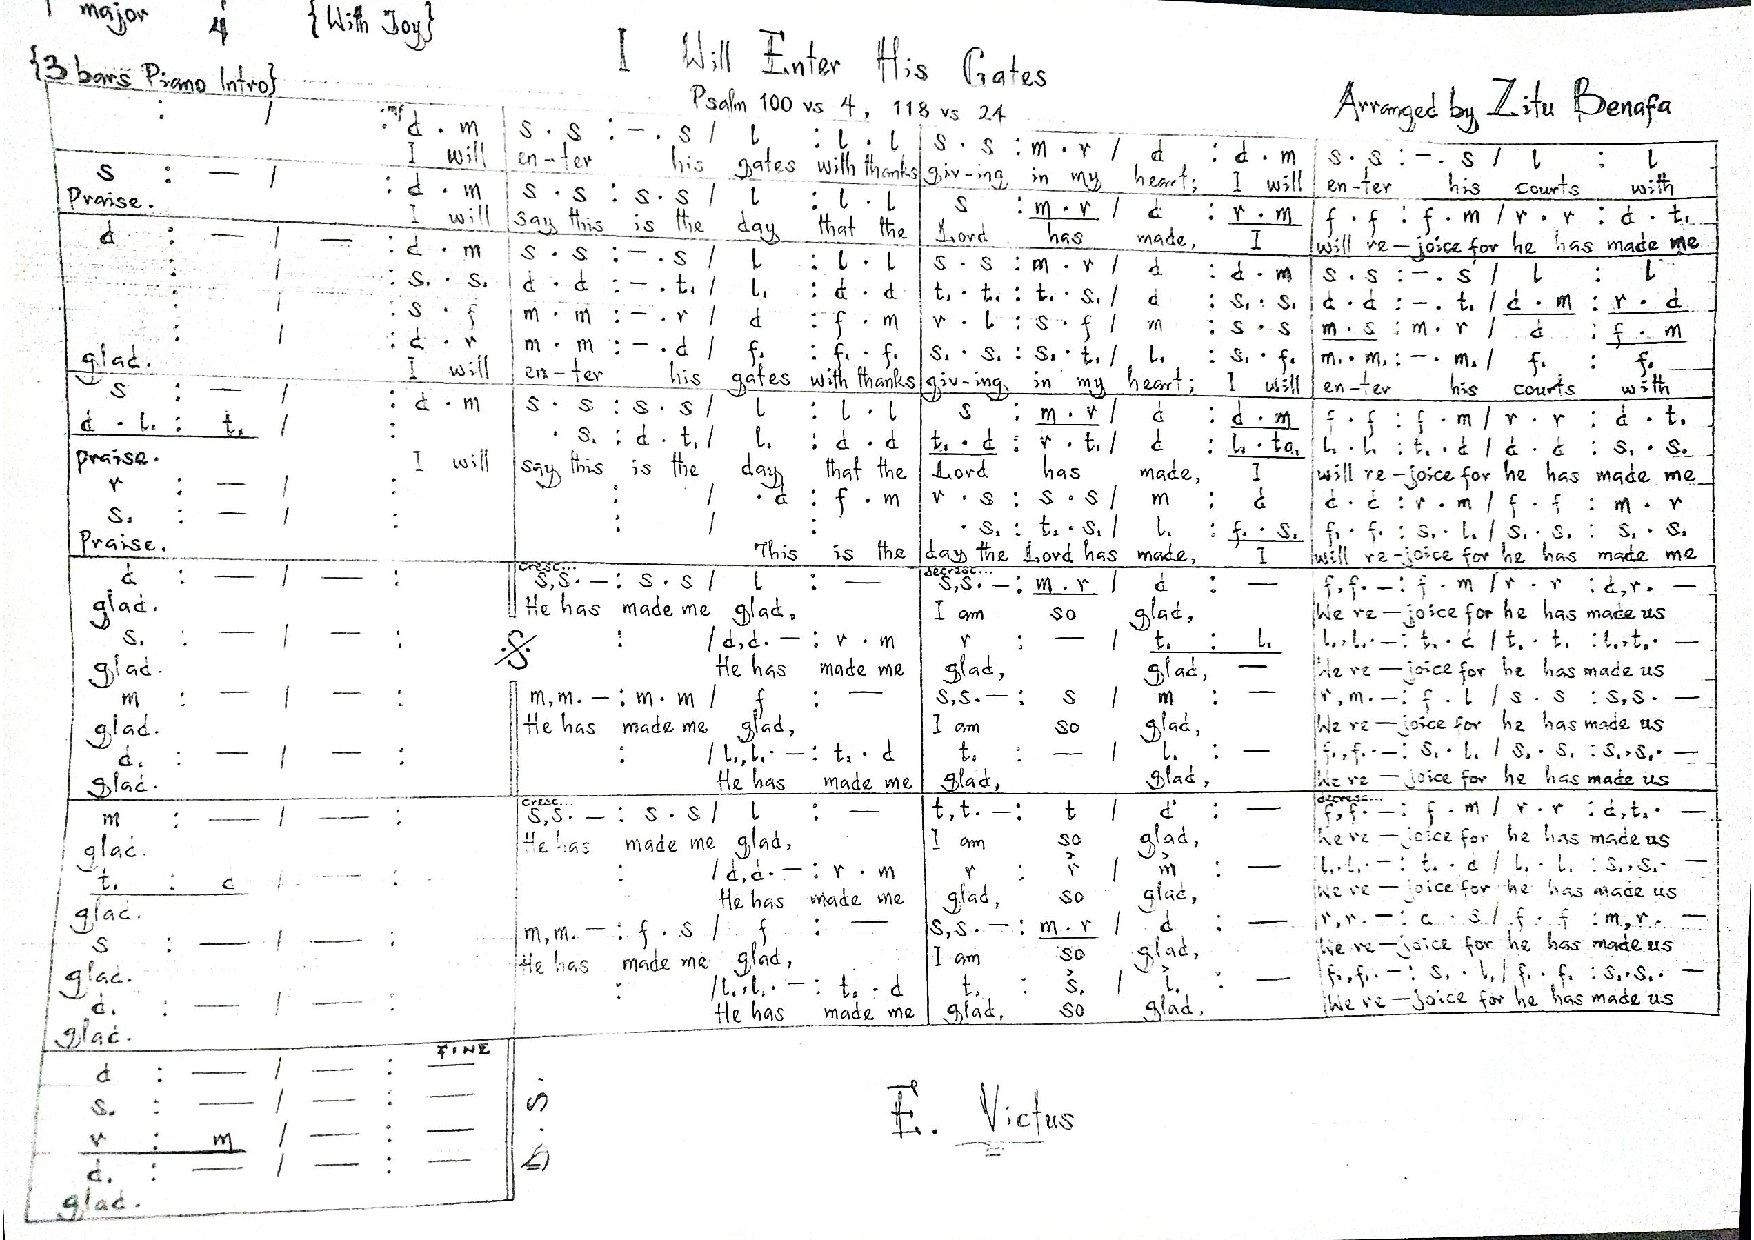 major 4 {With Joy}
I Will Enter His Gates
{3 bars Piano Intro}
Psalm 100 vs 4, 118 vs 24
Arranged by Zitu Benafa
: / : mf d . m s . s : - . s / l : l . l s . s : m . r / d : d . m s . s : - . s / l : l
I will en-ter his gates with thanks giv-ing in my heart; I will en-ter his courts with
s : — / : d . m s . s : s . s / l : l . l s : m . r / d : r . m f . f : f . m / r . r : d . t,
Praise. I will say this is the day that the Lord has made, I will re-joice for he has made me
d : — / — : d . m s . s : - . s / l : l . l s . s : m . r / d : d . m s . s : - . s / l : l
: / : s, . s, d . d : - . t, / l, : d . d t, . t, : t, . s, / d : s, . s, d . d : - . t, / d . m : r . d
: / : s . f m . m : - . r / d : f . m r . l : s . f / m : s . s m . s : m . r / d : f . m
: / : d . r m . m : - . d / f, : f, . f, s, . s, : s, . t, / l, : s, . f, m, . m, : - . m, / f, : f,
glad. I will en-ter his gates with thanks giv-ing in my heart; I will en-ter his courts with
s : — / : d . m s . s : s . s / l : l . l s : m . r / d : d . m f . f : f . m / r . r : d . t,
d . l, : t, / : . s, : d . t, / l, : d . d t, . d : r . t, / d : l, . ta, l, . l, : t, . d / d . d : s, . s,
praise. I will say this is the day that the Lord has made, I will re-joice for he has made me
r : — / : : / . d : f . m r . s : s . s / m : d d . d : r . m / f . f : m . r
s, : — / : : / : . s, : t, . s, / l, : f, . s, f, . f, : s, . l, / s, . s, : s, . s,
Praise. This is the day the Lord has made, I will re-joice for he has made me
cresc... decresc...
d : — / — : s,s. — : s . s / l : — s,s. — : m . r / d : — f,f. — : f . m / r . r : d,r. —
glad. He has made me glad, I am so glad, We re-joice for he has made us
s, : — / — : : / d,d. — : r . m r : — / t, : l, l,,l,. — : t, . d / t, . t, : l,,t,. —
glad. He has made me glad, glad, — We re-joice for he has made us
m : — / — : m,m. — : m . m / f : — s,s. — : s / m : — r,m. — : f . l / s . s : s,s. —
glad. He has made me glad, I am so glad, We re-joice for he has made us
d, : — / — : : / l,,l,. — : t, . d t, : — / l, : — f,,f,. — : s, . l, / s, . s, : s,,s,. —
glad. He has made me glad, glad, We re-joice for he has made us
cresc... decresc...
m : — / — : s,s. — : s . s / l : — t,t. — : t / d' : — f,f. — : f . m / r . r : d,t,. —
glad. He has made me glad, I am so glad, We re-joice for he has made us
t, : d / — : : / d,d. — : r . m r : r / m : — l,,l,. — : t, . d / l, . l, : s,,s,. —
glad. He has made me glad, so glad, We re-joice for he has made us
s : — / — : m,m. — : f . s / f : — s,s. — : m . r / d : — r,r. — : d . s / f . f : m,r. —
glad. He has made me glad, I am so glad, We re-joice for he has made us
d, : — / — : : / l,,l,. — : t, . d t, : s, / l, : — f,,f,. — : s, . l, / f, . f, : s,,s,. —
glad. He has made me glad, so glad. We re-joice for he has made us
FINE
d : — / — : —
s, : — / — : —
r : m / — : —
d, : — / — : —
glad.
D.S.
E. Victus